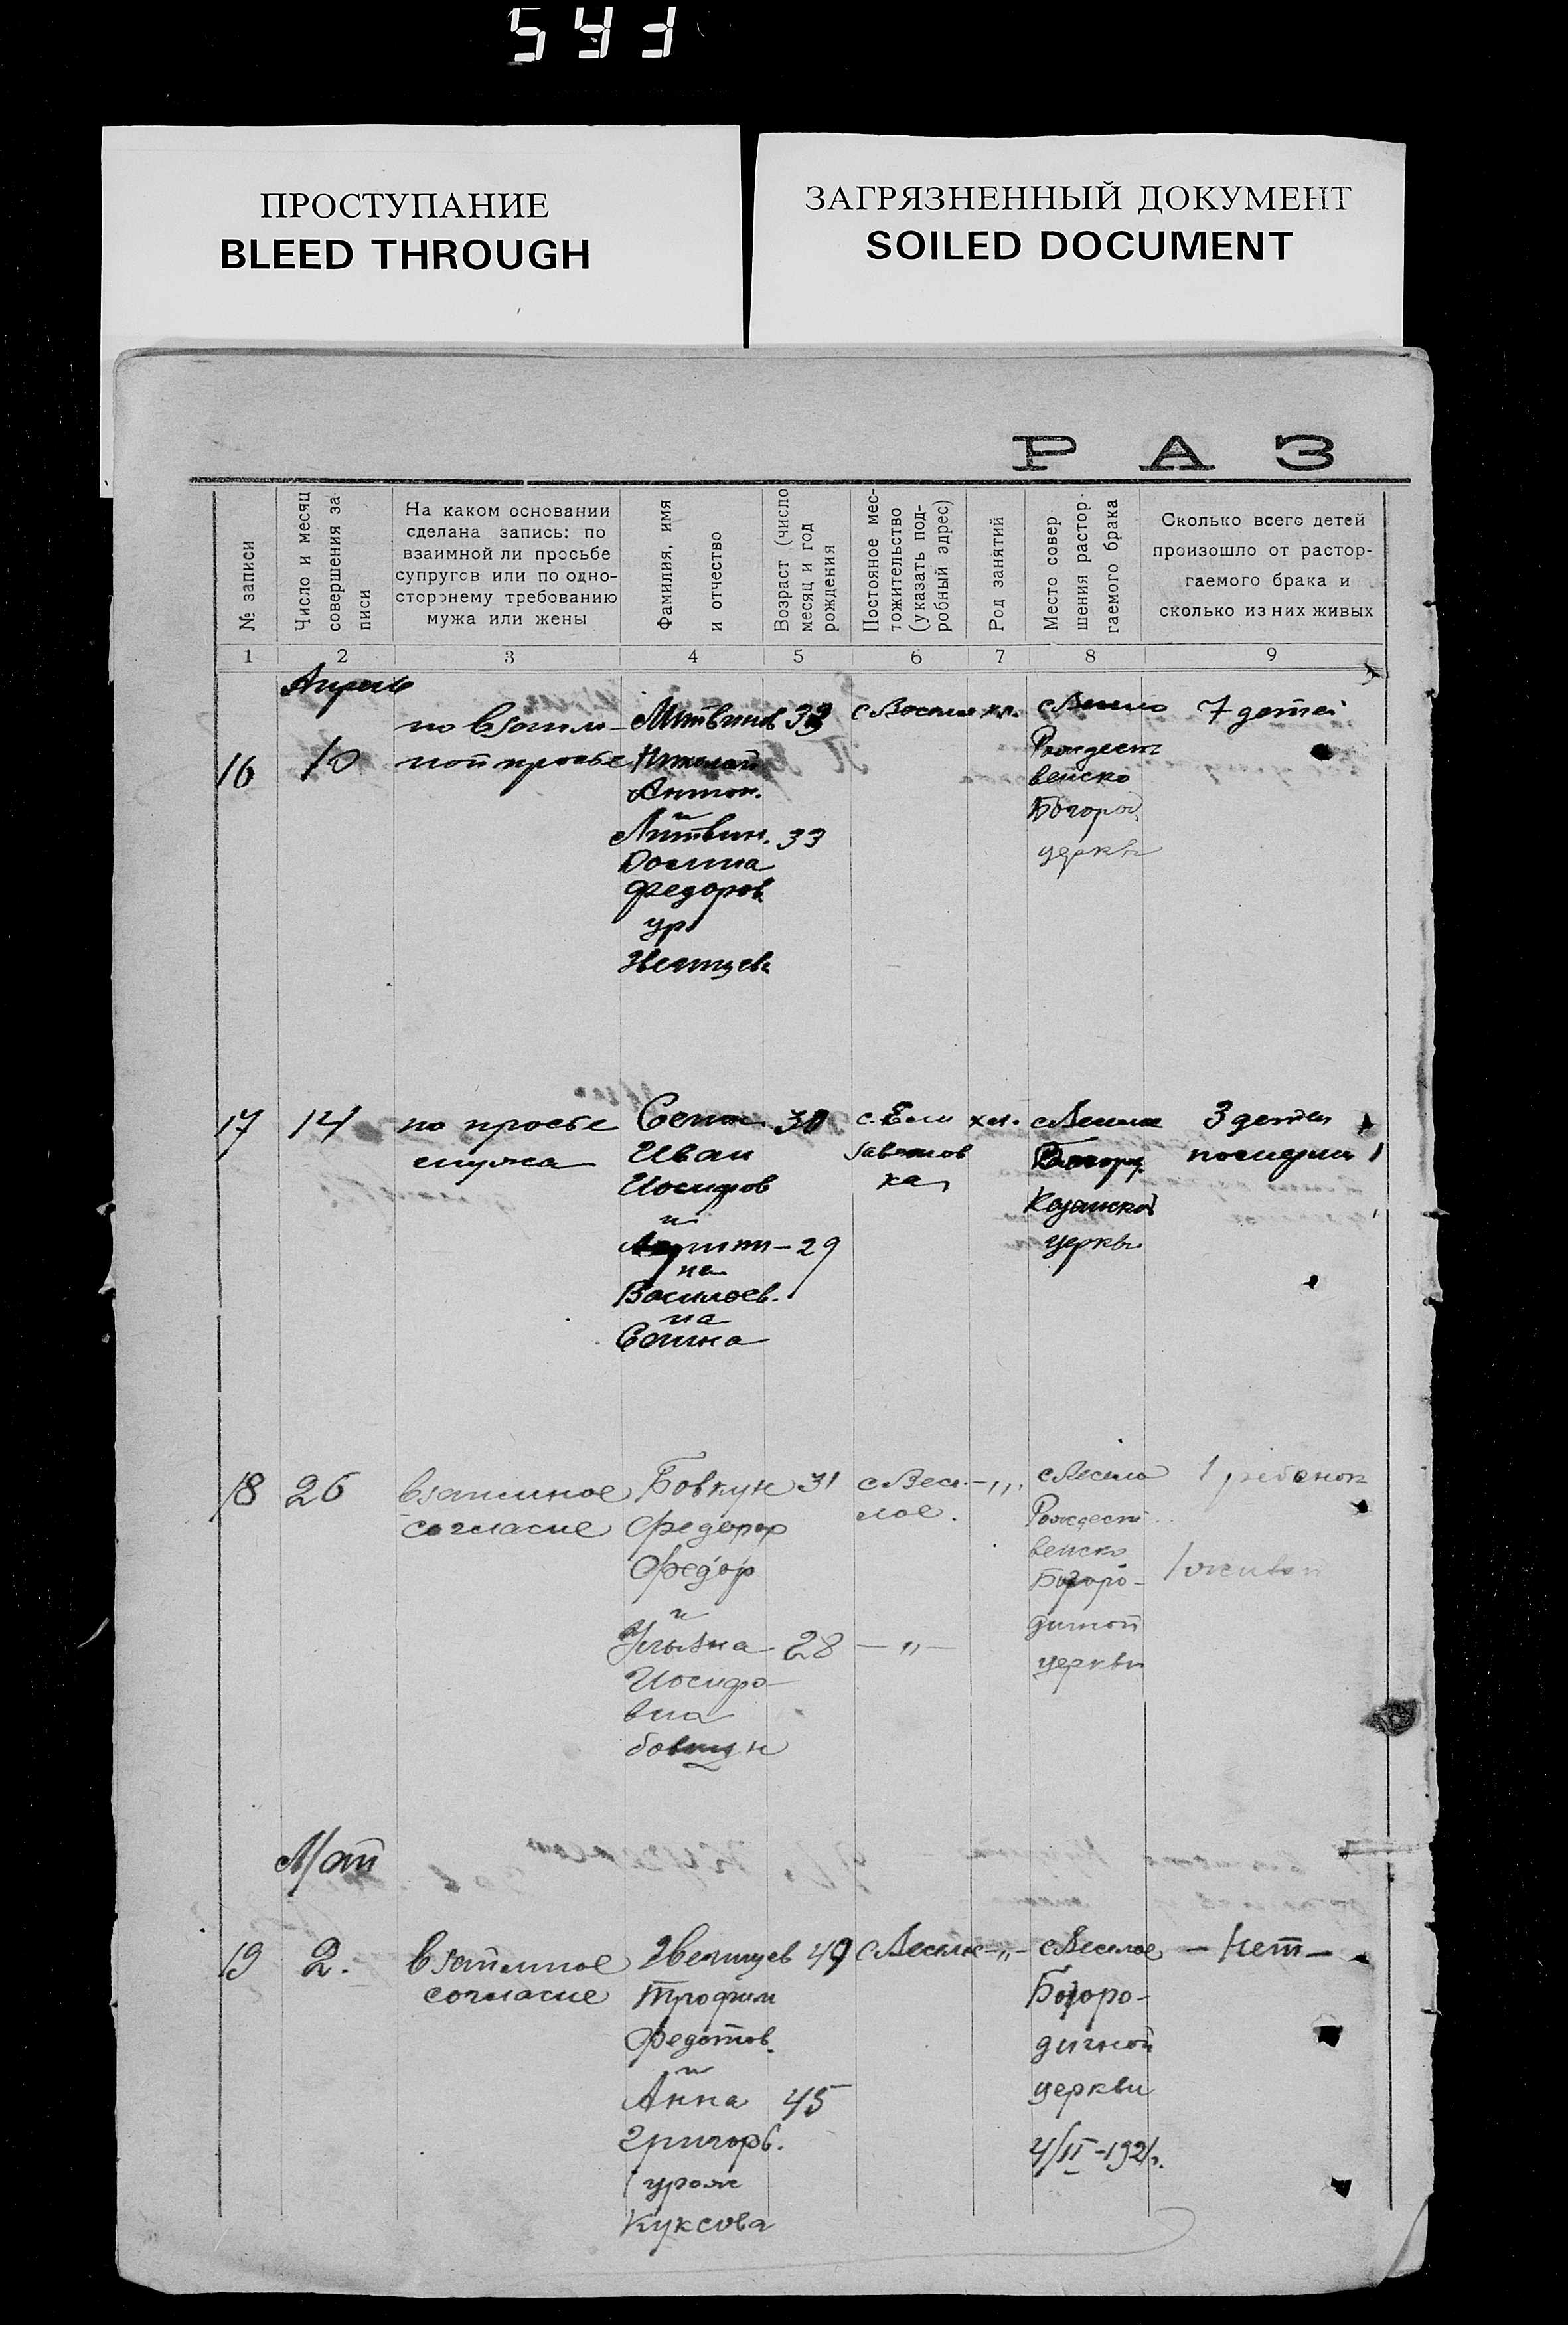 543
ПРОСТУПАНИЕ
BLEED THROUGH
ЗАГРЯЗНЕННЫЙ ДОКУМЕНТ
SOILED DOCUMENT
РАЗ
№ записи
Число и месяц
совершения за
писи
На каком основании
сделана запись: по
взаимной ли просьбе
супругов или по одно-
стороннему требованию
мужа или жены
Фамилия, имя
и отчество
Возраст (число
месяц и год
рождения
Постояное мес-
тожительство
(указать под-
робный адрес)
Род занятий
Место совер
шения растор.
гаемого брака
Сколько всего детей
произошло от растор-
гаемого брака и
сколько из них живых
1 2 3 4 5 6 7 8 9
Апрель
16
10
по взаим-
ной просьбе
Литвинов 33
Николай
Антон.
и
Литвин. 33
Федоров
ур
Звягицева
с
Рождест
венско
Богород
церкви
7 детей
17
14
по просьбе
Иван
Иосифов
и
на
Василев.
на
Сенина
30
29
с. Ели
заветов
ка
хл.
Казанской
церкви
3 детей
18
26
взаимное
согласие
Бовкун 31
Федор
и
Ульяна 28
Иосифо
вна
бовкун
с Весе
лое.
— „ —
Рождест
венско
Богоро-
дичной
церкви
1 ребенок
Май
19
2.
взаимное
согласие
Звягицев 49
Трофим
Федотов.
и
Анна 45
Григорь.
урож
Куксова
с Веселое
— „ —
с Веселое
Богоро-
дичной
церкви
4/II-1921г.
— Нет —